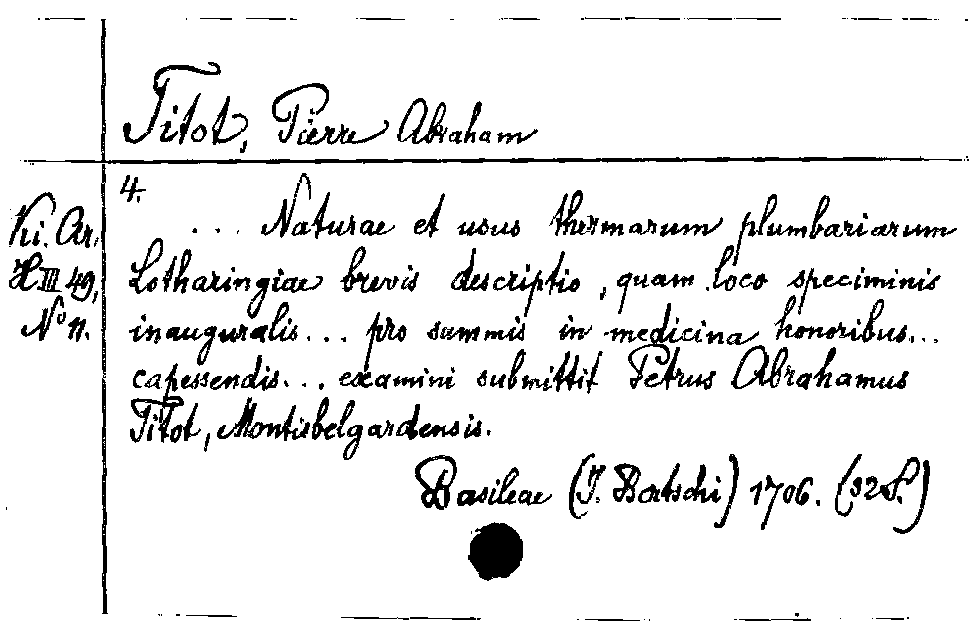 Titot, Pierre Abraham
4.
Ki. Ar.
H III 49,
No 11.
... Naturae et usus thermarum plumbariarum
Lotharingiae brevis descriptio, quam loco speciminis
inauguralis... pro summis in medicina honoribus...
capessendis... examini submittit Petrus Abrahamus
Titot, Montisbelgardensis.
Basileae (J. Bertschi) 1706. (32 S.)